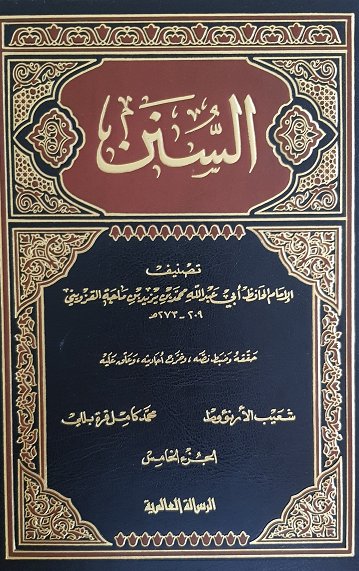 السُّنَن
تصنيف
الإمام الحافظ أبي عبد الله محمد بن يزيد بن ماجة القزويني
٢٠٩ - ٢٧٣هـ
حققه وضبط نصه، وخرج أحاديثه، وعلق عليه
شعيب الأرنؤوط
محمد كامل قره بللي
الجزء الخامس
الرسالة العالمية